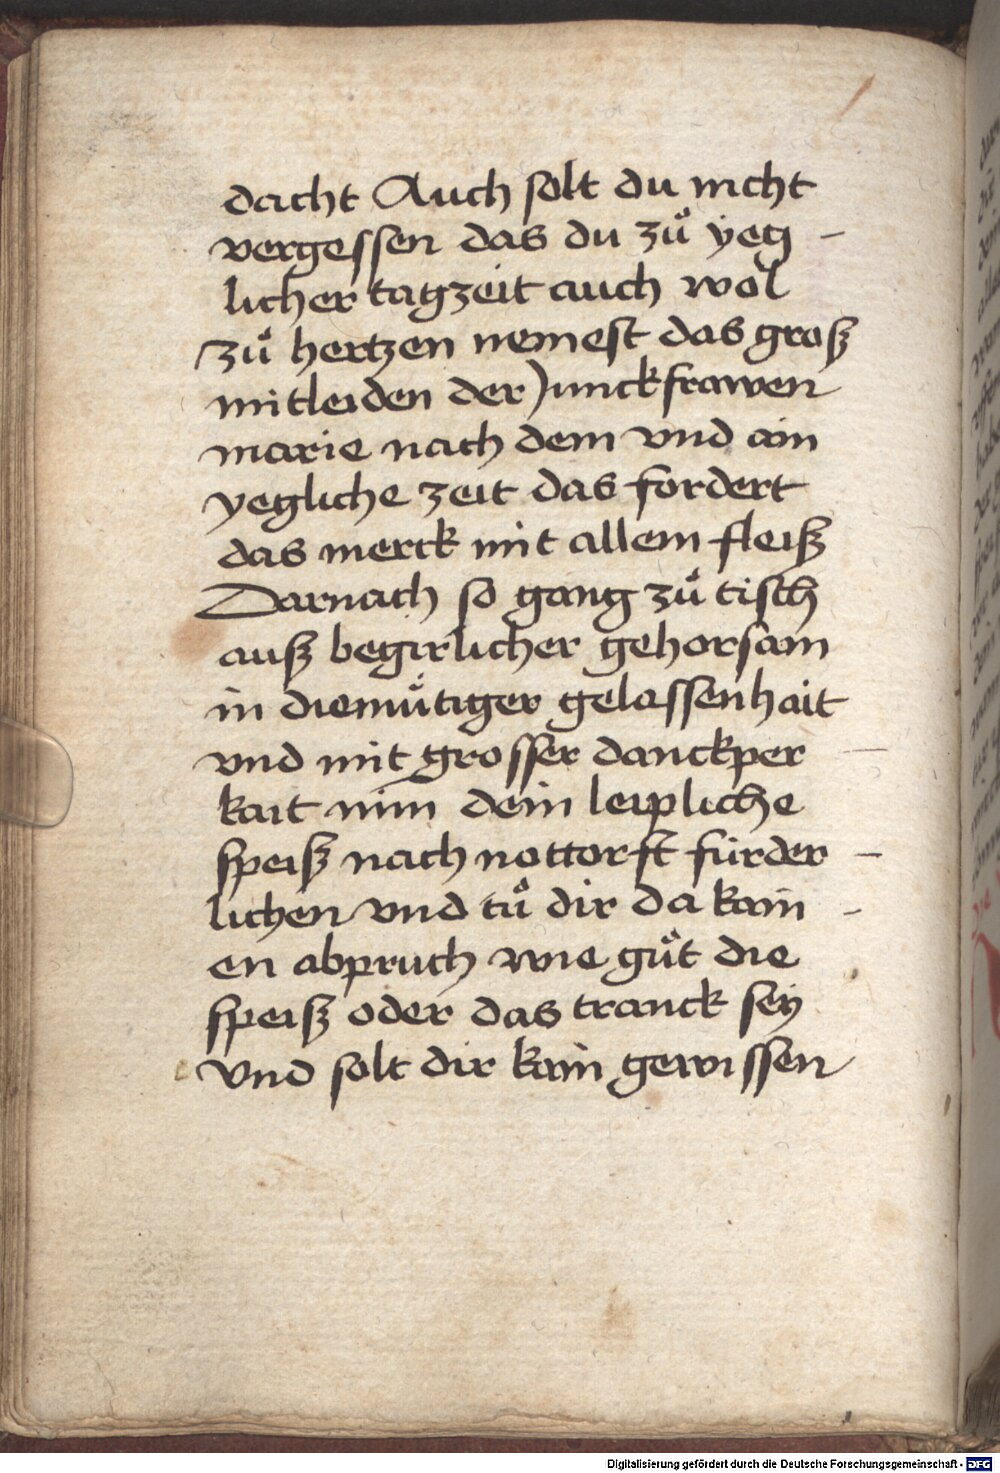 dacht Auch solt du nicht
vergessen das du zuͦ yeg -
licher tagzeit auch wol
zuͦ hertzen nemest das groß
mitleiden der Junckfrawen
marie nach dem vnd ain
yegliche zeit das fordert
das merck mit allem fleiß
Darnach so gang zuͦ tisch
auß begirlicher gehorsam
in diemuͤtiger gelassenhait
vnd mit grosser danckper
kait nim dein leipliche
speiß nach nottorft fürder -
lichen vnd tuͦ dir da kain -
en abpruch wie guͦt die
speiß oder das tranck sey
Vnd solt dir kain gewissen
Digitalisierung gefördert durch die Deutsche Forschungsgemeinschaft - DFG